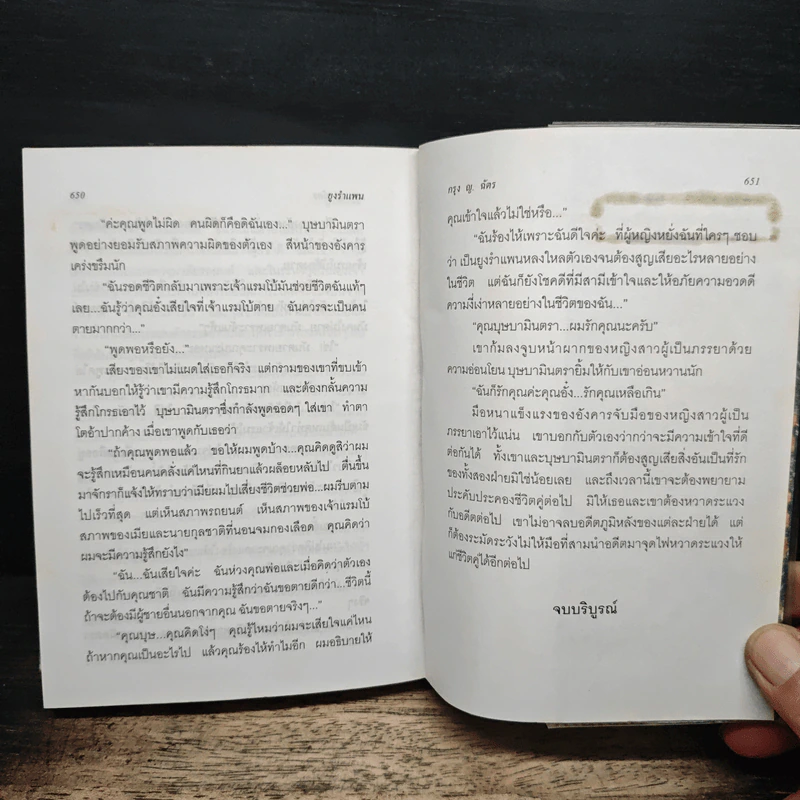 650
ยูงรำแพน
“ค่ะคุณพูดไม่ผิด คนผิดก็คือดิฉันเอง...” บุษบามินตรา
พูดอย่างยอมรับสภาพความผิดของตัวเอง สีหน้าของอังคาร
เคร่งขรึมนัก
“ฉันรอดชีวิตกลับมาเพราะเจ้าแรมโบ้มันช่วยชีวิตฉันแท้ๆ
เลย...ฉันรู้ว่าคุณอั๋งเสียใจที่เจ้าแรมโบ้ตาย ฉันควรจะเป็นคน
ตายมากกว่า...”
“พูดพอหรือยัง...”
เสียงของเขาไม่แผดใส่เธอก็จริง แต่กรามของเขาที่ขบเข้า
หากันบอกให้รู้ว่าเขามีความรู้สึกโกรธมาก และต้องกลั้นความ
รู้สึกโกรธเอาไว้ บุษบามินตราซึ่งกำลังพูดฉอดๆ ใส่เขา ทำตา
โตอ้าปากค้าง เมื่อเขาพูดกับเธอว่า
“ถ้าคุณพูดพอแล้ว ขอให้ผมพูดบ้าง...คุณคิดดูสิว่าผม
จะรู้สึกเหมือนคนคลั่งแค่ไหนที่กินยาแล้วผล็อยหลับไป ตื่นขึ้น
มาจักราก็แจ้งให้ทราบว่าเมียผมไปเสี่ยงชีวิตช่วยพ่อ...ผมรีบตาม
ไปเร็วที่สุด แต่เห็นสภาพรถยนต์ เห็นสภาพของเจ้าแรมโบ้
สภาพของเมียและนายกุลชาติที่นอนจมกองเลือด คุณคิดว่า
ผมจะมีความรู้สึกยังไง”
“ฉัน...ฉันเสียใจค่ะ ฉันห่วงคุณพ่อและเมื่อคิดว่าตัวเอง
ต้องไปกับคุณชาติ ฉันมีความรู้สึกว่าฉันขอตายดีกว่า...ชีวิตนี้
ถ้าจะต้องมีผู้ชายอื่นนอกจากคุณ ฉันขอตายจริงๆ...”
“คุณบุษ...คุณคิดโง่ๆ คุณรู้ไหมว่าผมจะเสียใจแค่ไหน
ถ้าหากคุณเป็นอะไรไป แล้วคุณร้องไห้ทำไมอีก ผมอธิบายให้
กรุง ญ. ฉัตร
651
คุณเข้าใจแล้วไม่ใช่หรือ...”
“ฉันร้องไห้เพราะฉันดีใจค่ะ ที่ผู้หญิงหยั่งฉันที่ใครๆ ชอบ
ว่า เป็นยูงรำแพนหลงใหลตัวเองจนต้องสูญเสียอะไรหลายอย่าง
ในชีวิต แต่ฉันก็ยังโชคดีที่มีสามีเข้าใจและให้อภัยความอวดดี
ความงี่เง่าหลายอย่างในชีวิตของฉัน...”
“คุณบุษบามินตรา...ผมรักคุณนะครับ”
เขาก้มลงจูบหน้าผากของหญิงสาวผู้เป็นภรรยาด้วย
ความอ่อนโยน บุษบามินตรายิ้มให้กับเขาอ่อนหวานนัก
“ฉันก็รักคุณค่ะคุณอั๋ง...รักคุณเหลือเกิน”
มือหนาแข็งแรงของอังคารจับมือของหญิงสาวผู้เป็น
ภรรยาเอาไว้แน่น เขาบอกกับตัวเองว่ากว่าจะมีความเข้าใจที่ดี
ต่อกันได้ ทั้งเขาและบุษบามินตราก็ต้องสูญเสียสิ่งอันเป็นที่รัก
ของทั้งสองฝ่ายมิใช่น้อยเลย และถึงเวลานี้เขาจะต้องพยายาม
ประคับประคองชีวิตคู่ต่อไป มิให้เธอและเขาต้องหวาดระแวง
กับอดีตต่อไป เขาไม่อาจลบอดีตภูมิหลังของแต่ละฝ่ายได้ แต่
ก็ต้องระมัดระวังไม่ให้มือที่สามนำอดีตมาจุดไฟหวาดระแวงให้
แก่ชีวิตคู่ได้อีกต่อไป
จบบริบูรณ์